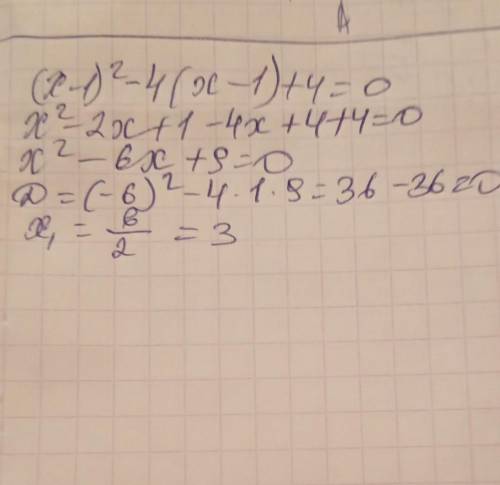 A
(x-1)² - 4(x-1) + 4 = 0
x² - 2x + 1 - 4x + 4 + 4 = 0
x² - 6x + 9 = 0
D = (-6)² - 4·1·9 = 36 - 36 = 0
x₁ = 6/2 = 3